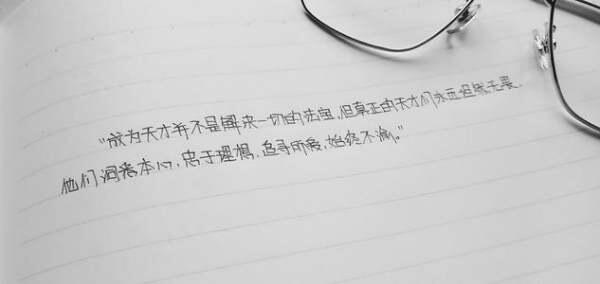 "成为天才并不是解决一切的法宝,但真正的天才们永远坦然无畏.
他们洞悉本心,忠于理想,追寻所爱,始终不渝."